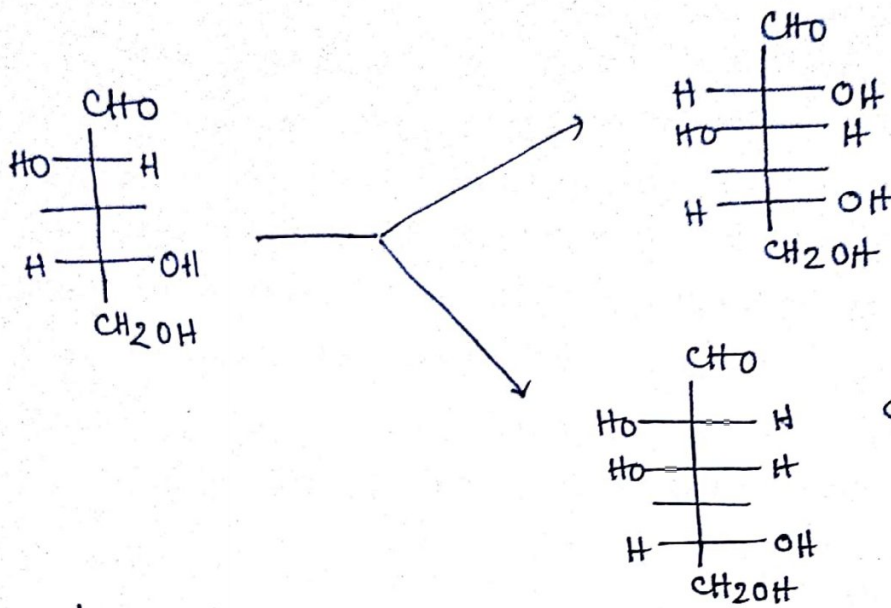 CHO
HO H
H OH
CH2OH
CHO
H OH
HO H
H OH
CH2OH
CHO
HO H
HO H
H OH
CH2OH